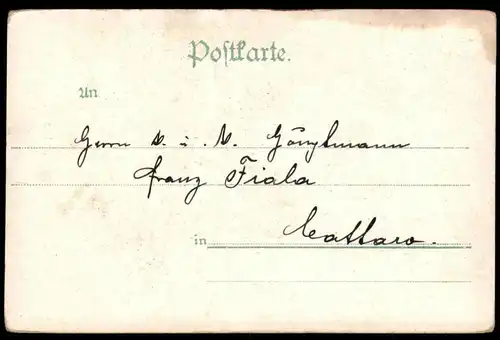 Postkarte.
An
Herrn k. u. k. Hauptmann
Franz Fiala
in Cattaro.